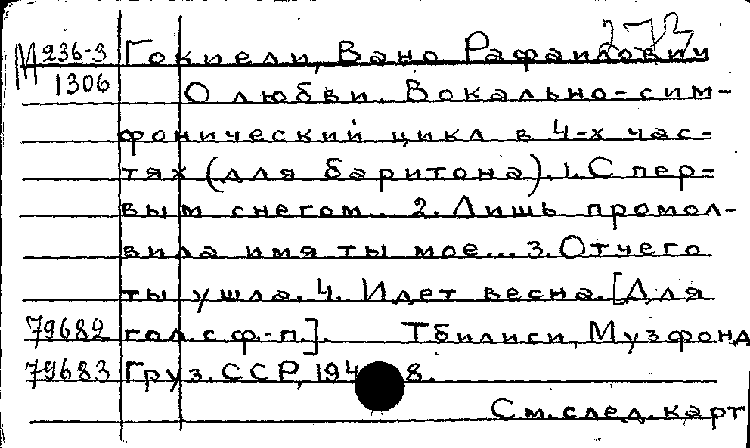 273
М 236-3 Гокиели, Вано Рафаилович
1306 О любви. Вокально-сим-
фонический цикл в 4-х час-
тях (для баритона). 1. С пер-
вым снегом.. 2. Лишь промол-
вила имя ты мое... 3. Отчего
ты ушла. 4. Идет весна. [Для
79682 гол. с ф.-п.]. Тбилиси, Музфонд
79683 Груз. ССР, 194 8.
См. след. карт